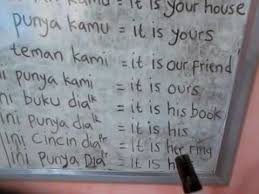 kamu = it is your house
punya kamu = it is yours
teman kami = it is our friend
punya kami = it is ours
ini buku dia lk = it is his book
Ini punya dia lk = it is his
Ini Cincin dia = it is her ring
Ini punya Dia = it is